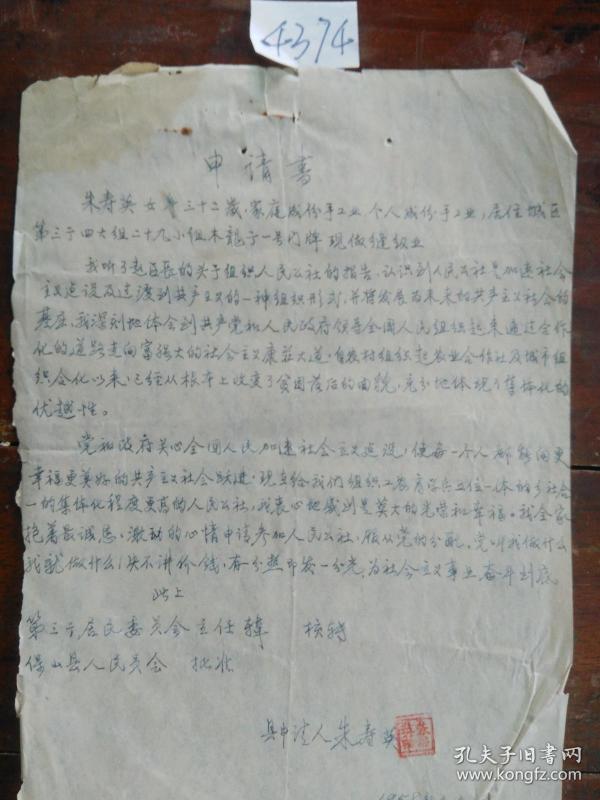 4374
申请书
朱寿英 女 年三十二岁，家庭成份手工业，个人成份手工业，居住城区
第三丁四大组二十九小组木龙丁一号门牌 现做缝纫业
我听了赵区长的关于组织人民公社的报告，认识到人民公社是加速社会
主义建设及过渡到共产主义的一种组织形式，并将发展为未来的共产主义社会的
基层，我深刻地体会到共产党和人民政府领导全国人民组织起来通过合作
化的道路走向富强大的社会主义康庄大道，自农村组织起农业合作社及城市组
织合化以来，已经从根本上改变了贫困落后的面貌，充分地体现了集体化的
优越性。
党和政府关心全国人民加速社会主义建设，使每一个人都能向更
幸福更美好的共产主义社会跃进，现在给我们组织工农商学兵五位一体的乡社合
一的集体化程度更高的人民公社，我衷心地感到是莫大的光荣和幸福。我全家
抱着最诚恳，激动的心情申请参加人民公社，服从党的分配，党叫我做什么
我就做什么，决不讲价钱，有一分热即发一分光，为社会主义事业奋斗到底
此上
第三丁居民委员会主任韩 核转
保山县人民委员会 批准
具申请人朱寿英
孔夫子旧书网
www.kongfz.com